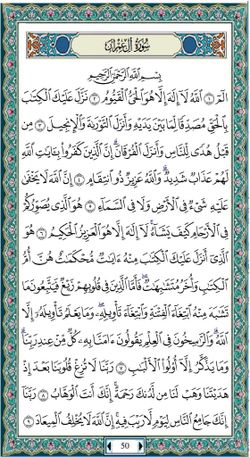 سُورَةُ آلِ عِمۡرَانَ
بِسۡمِ ٱللَّهِ ٱلرَّحۡمَٰنِ ٱلرَّحِيمِ
الٓمٓ ١ ٱللَّهُ لَآ إِلَٰهَ إِلَّا هُوَ ٱلۡحَيُّ ٱلۡقَيُّومُ ٢ نَزَّلَ عَلَيۡكَ ٱلۡكِتَٰبَ
بِٱلۡحَقِّ مُصَدِّقٗا لِّمَا بَيۡنَ يَدَيۡهِ وَأَنزَلَ ٱلتَّوۡرَىٰةَ وَٱلۡإِنجِيلَ ٣ مِن
قَبۡلُ هُدٗى لِّلنَّاسِ وَأَنزَلَ ٱلۡفُرۡقَانَۗ إِنَّ ٱلَّذِينَ كَفَرُواْ بِـَٔايَٰتِ ٱللَّهِ
لَهُمۡ عَذَابٞ شَدِيدٞۗ وَٱللَّهُ عَزِيزٞ ذُو ٱنتِقَامٍ ٤ إِنَّ ٱللَّهَ لَا يَخۡفَىٰ
عَلَيۡهِ شَيۡءٞ فِي ٱلۡأَرۡضِ وَلَا فِي ٱلسَّمَآءِ ٥ هُوَ ٱلَّذِي يُصَوِّرُكُمۡ
فِي ٱلۡأَرۡحَامِ كَيۡفَ يَشَآءُۚ لَآ إِلَٰهَ إِلَّا هُوَ ٱلۡعَزِيزُ ٱلۡحَكِيمُ ٦ هُوَ
ٱلَّذِيٓ أَنزَلَ عَلَيۡكَ ٱلۡكِتَٰبَ مِنۡهُ ءَايَٰتٞ مُّحۡكَمَٰتٌ هُنَّ أُمُّ
ٱلۡكِتَٰبِ وَأُخَرُ مُتَشَٰبِهَٰتٞۖ فَأَمَّا ٱلَّذِينَ فِي قُلُوبِهِمۡ زَيۡغٞ فَيَتَّبِعُونَ مَا
تَشَٰبَهَ مِنۡهُ ٱبۡتِغَآءَ ٱلۡفِتۡنَةِ وَٱبۡتِغَآءَ تَأۡوِيلِهِۦۗ وَمَا يَعۡلَمُ تَأۡوِيلَهُۥٓ إِلَّا
ٱللَّهُۗ وَٱلرَّٰسِخُونَ فِي ٱلۡعِلۡمِ يَقُولُونَ ءَامَنَّا بِهِۦ كُلّٞ مِّنۡ عِندِ رَبِّنَاۗ
وَمَا يَذَّكَّرُ إِلَّآ أُوْلُواْ ٱلۡأَلۡبَٰبِ ٧ رَبَّنَا لَا تُزِغۡ قُلُوبَنَا بَعۡدَ إِذۡ
هَدَيۡتَنَا وَهَبۡ لَنَا مِن لَّدُنكَ رَحۡمَةًۚ إِنَّكَ أَنتَ ٱلۡوَهَّابُ ٨ رَبَّنَآ
إِنَّكَ جَامِعُ ٱلنَّاسِ لِيَوۡمٖ لَّا رَيۡبَ فِيهِۚ إِنَّ ٱللَّهَ لَا يُخۡلِفُ ٱلۡمِيعَادَ ٩
50